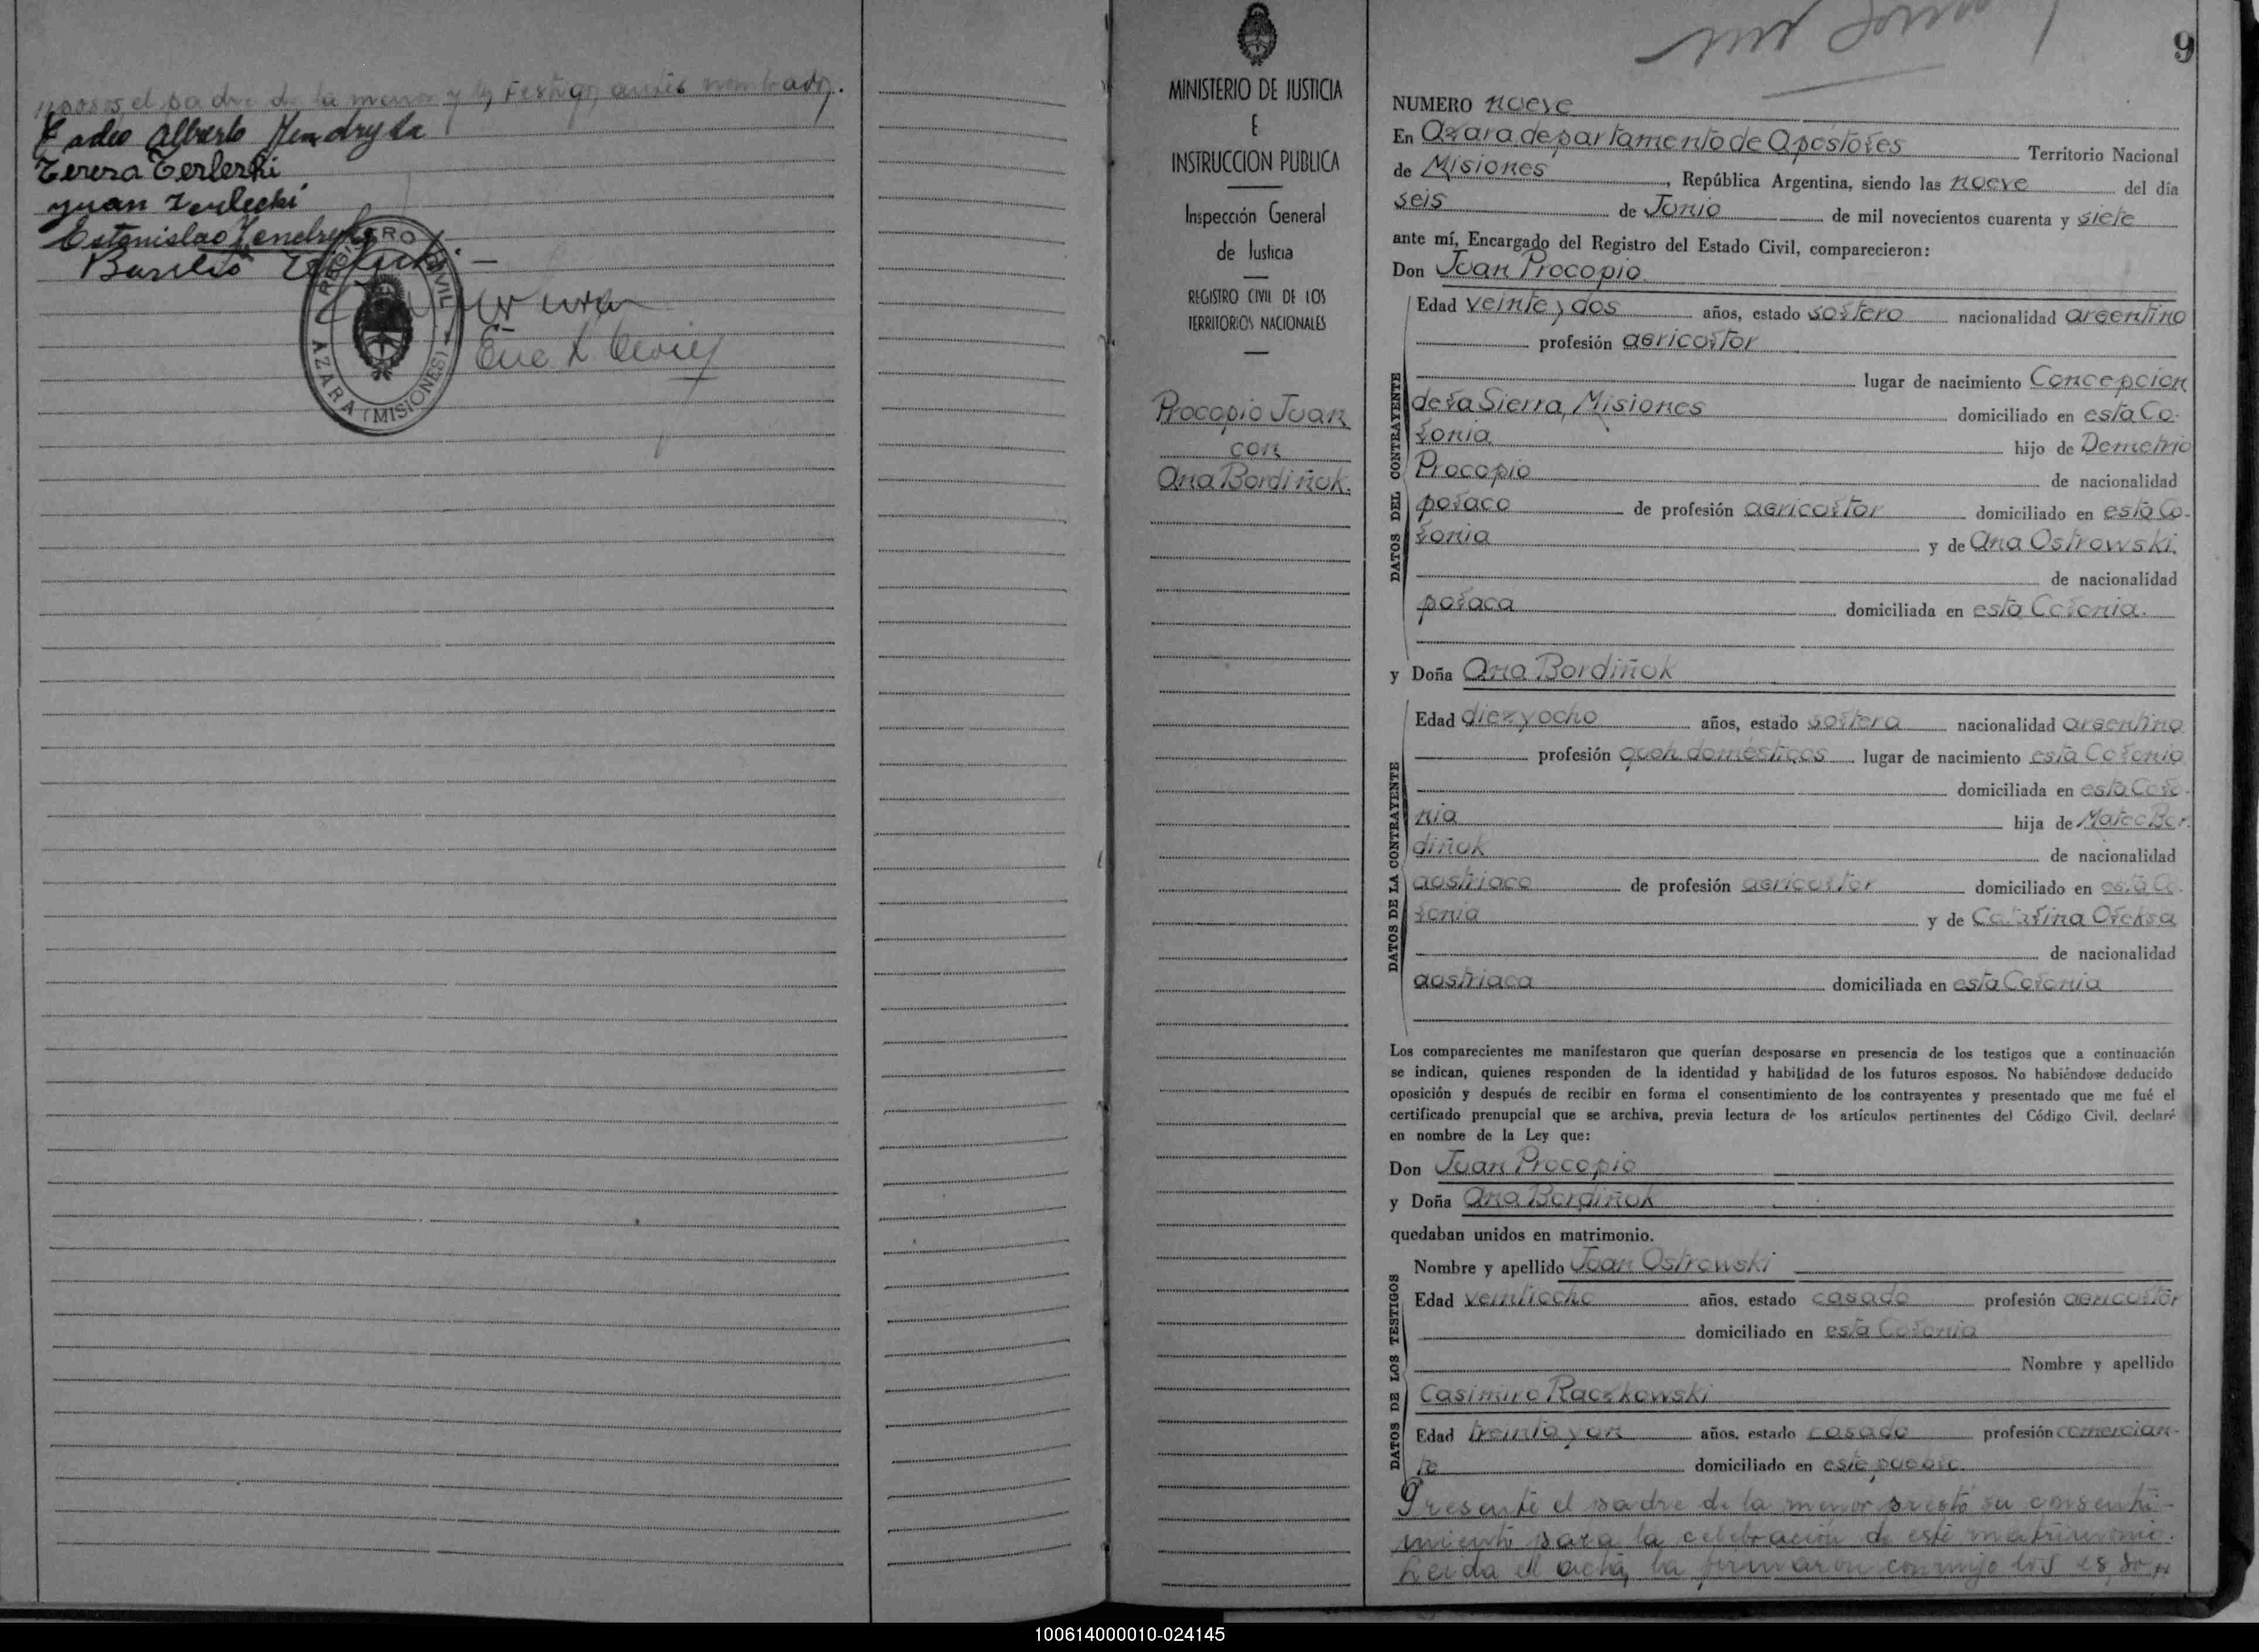 esposos el padre de la menor y los testigos antes nombrados.
Tadeo Alberto Jendryka
Teresa Terleski
Juan Terlecki
Estanislao Jendryka
Basilio
REGISTRO CIVIL
AZARA (MISIONES)
Enc
MINISTERIO DE JUSTICIA
E
INSTRUCCION PUBLICA
Inspección General
de Justicia
REGISTRO CIVIL DE LOS
TERRITORIOS NACIONALES
Procopio Juan
con
Ana Bordiñuk.
9
NUMERO nueve
En Azara departamento de Apóstoles Territorio Nacional
de Misiones, República Argentina, siendo las nueve del día
seis de Junio de mil novecientos cuarenta y siete
ante mí, Encargado del Registro del Estado Civil, comparecieron:
Don Juan Procopio
DATOS DEL CONTRAYENTE
Edad veinte y dos años, estado soltero nacionalidad argentino
profesión agricultor
lugar de nacimiento Concepcion
de la Sierra, Misiones domiciliado en esta Co-
lonia hijo de Demetrio
Procopio de nacionalidad
polaco de profesión agricultor domiciliado en esta Co-
lonia y de Ana Ostrowski
de nacionalidad
polaca domiciliada en esta Colonia.
y Doña Ana Bordiñuk
DATOS DE LA CONTRAYENTE
Edad diez y ocho años, estado soltera nacionalidad argentina
profesión queh. domésticos lugar de nacimiento esta Colonia
domiciliada en esta Colo-
nia hija de Mateo Bor-
diñuk de nacionalidad
austriaco de profesión agricultor domiciliado en esta Co-
lonia y de Catalina Oleksa
de nacionalidad
austriaca domiciliada en esta Colonia
Los comparecientes me manifestaron que querían desposarse en presencia de los testigos que a continuación
se indican, quienes responden de la identidad y habilidad de los futuros esposos. No habiéndose deducido
oposición y después de recibir en forma el consentimiento de los contrayentes y presentado que me fué el
certificado prenupcial que se archiva, previa lectura de los artículos pertinentes del Código Civil, declaré
en nombre de la Ley que:
Don Juan Procopio
y Doña Ana Bordiñuk
quedaban unidos en matrimonio.
DATOS DE LOS TESTIGOS
Nombre y apellido Juan Ostrowski
Edad veintiocho años, estado casado profesión agricultor
domiciliado en esta Colonia
Nombre y apellido
Casimiro Raczkowski
Edad treinta y un años, estado casado profesión comercian-
te domiciliado en este pueblo.
Presente el padre de la menor prestó su consenti-
miento para la celebración de este matrimonio.
Leída el acta, la firmaron conmigo los espo-
100614000010-024145